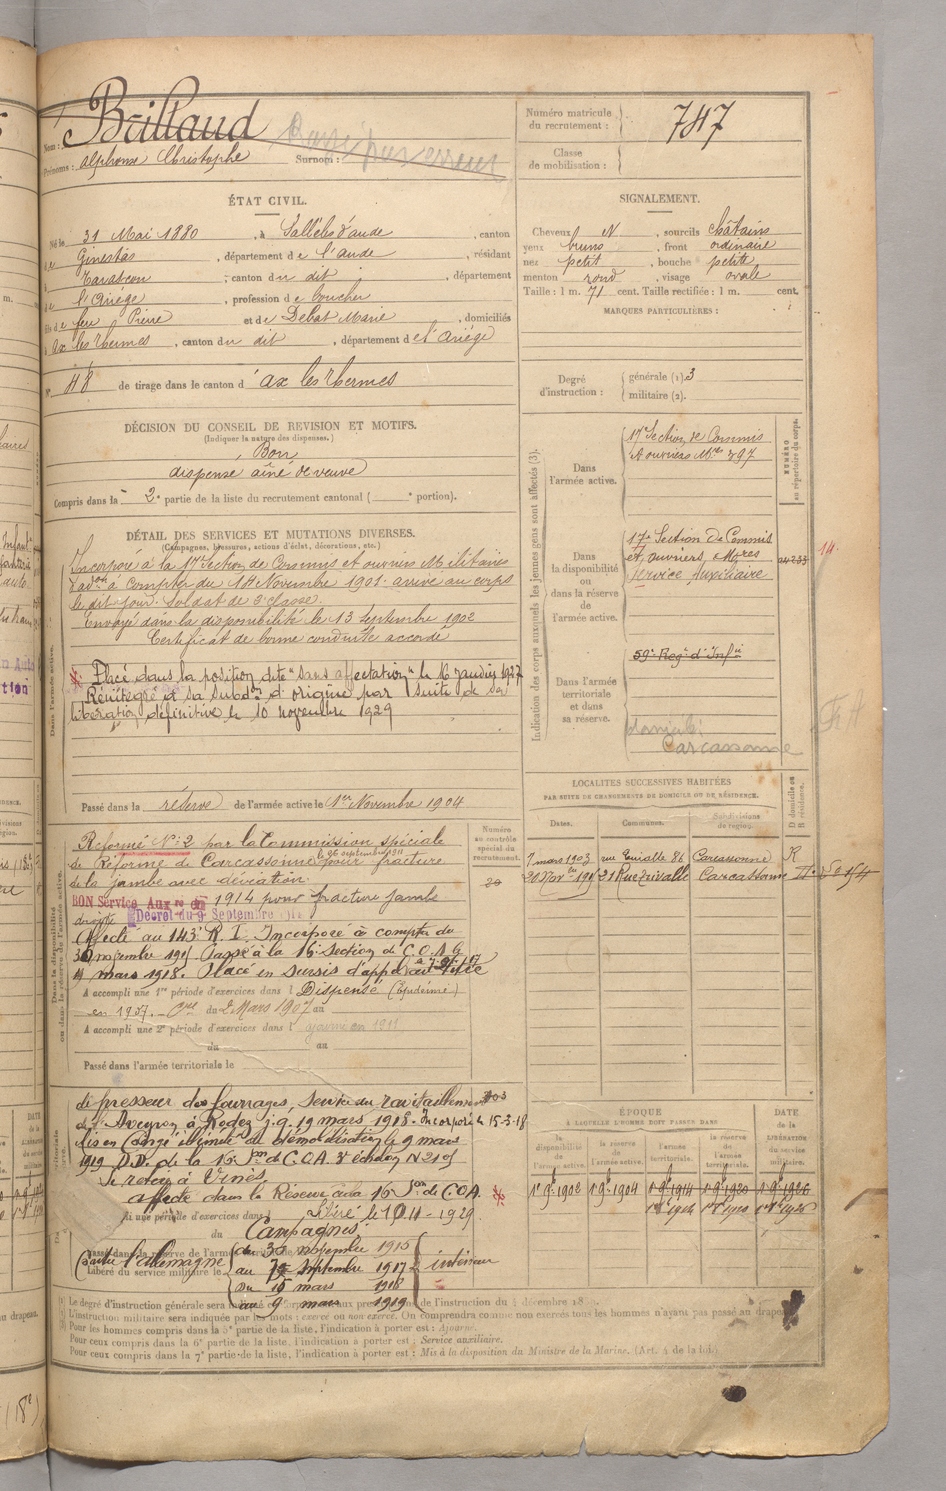 Nom : Brillaud
Rayé par erreur
Prénoms : Alphonse Christophe Surnom :
Numéro matricule du recrutement : 747
Classe de mobilisation :
ÉTAT CIVIL.
Né le 31 Mai 1880, à Sallèles d'aude, canton
de Ginestas, département de l'aude, résidant
à Tarascon, canton du dit, département
de l'Ariége, profession de boucher
fils de feu Pierre et de Debat Marie, domiciliés
à ax les thermes, canton du dit, département de l'Ariége
N° 48 de tirage dans le canton d'ax les thermes
SIGNALEMENT.
Cheveux N, sourcils châtains
yeux bruns, front ordinaire
nez petit, bouche petite
menton rond, visage ovale
Taille : 1 m. 71 cent. Taille rectifiée : 1 m. cent.
MARQUES PARTICULIÈRES :
Degré d'instruction : générale (1) 3
militaire (2).
DÉCISION DU CONSEIL DE REVISION ET MOTIFS.
(Indiquer la nature des dispenses.)
Bon
dispensé aîné de veuve
Compris dans la 2e partie de la liste du recrutement cantonal ( e portion).
DÉTAIL DES SERVICES ET MUTATIONS DIVERSES.
(Campagnes, blessures, actions d'éclat, décorations, etc.)
Incorporé à la 17e Section de Commis et ouvriers Militaires
d'adon à compter du 14 Novembre 1901. arrivé au corps
le dit jour. Soldat de 2e classe.
Envoyé dans la disponibilité le 13 Septembre 1902
Certificat de bonne conduite accordé
Placé dans la position dite "sans affectation" le 16 janvier 1927
Réintégré à sa subdon d'origine par suite de sa
libération définitive le 10 novembre 1929
Passé dans la réserve de l'armée active le 1er Novembre 1904
Indication des corps auxquels les jeunes gens sont affectés (3).
NUMÉRO au répertoire du corps.
Dans l'armée active.
17e Section de Commis
et ouvriers Mres 397
Dans la disponibilité ou dans la réserve de l'armée active.
17e Section de Commis
et ouvriers Mres
Service Auxiliaire
14.
Dans l'armée territoriale et dans sa réserve.
59e Regt d'Infie
domicile:
Carcassonne
LOCALITÉS SUCCESSIVES HABITÉES
PAR SUITE DE CHANGEMENTS DE DOMICILE OU DE RÉSIDENCE.
Dates. Communes. Subdivisions de région. D domicile ou R résidence.
7 mars 1903 86 Carcassonne R
21 Rue Carcassonne
Numéro au contrôle spécial du recrutement.
Reformé N° 2 par la Commission spéciale
de Réforme de Carcassonne le 26 septembre 1911 pour fracture
de la jambe avec déviation.
BON Service Auxre 1914 pour fracture jambe
droite Décret du 9 Septembre 1914
Affecté au 143e R.I. Incorporé à compter du
30 novembre 1915 Passé à la 16e Section de C.O.A. le
4 mars 1918. Placé en sursis d'appel
A accompli une 1re période d'exercices dans l Dispensé (Epidémie)
en 1907. du 2 Mars 1907 au
A accompli une 2e période d'exercices dans l ajourné en 1911
du au
Passé dans l'armée territoriale le
de presseur des fourrages, service du ravitaillement
de l'Aveyron à Rodez j.q. 19 mars 1918. Incorporé le 15-3-18
Mis en Congé illimité de démobilisation le 9 mars
1919 D.D. de la 16e Son de C.O.A. 3e échelon N°
Se retire à
affecté dans la Réserve à la 16e Son de C.O.A.
Libéré le 10-11-1929
une période d'exercices dans l
du
Campagnes:
Contre l'Allemagne
du 30 novembre 1915
au Septembre 1917
du 15 mars 1918
au 9 mars 1919
intérieur
Libéré du service militaire le
ÉPOQUE
À LAQUELLE L'HOMME DOIT PASSER DANS
DATE de la LIBÉRATION du service militaire.
la disponibilité de l'armée active. la réserve de l'armée active. l'armée territoriale. la réserve de l'armée territoriale.
1er 9bre 1902 1er 9bre 1904 1er 9bre 1914 1er 9bre 1920 1er 9bre 1926
Le degré d'instruction générale sera indiqué de l'instruction du 4 décembre
L'instruction militaire sera indiquée par les mots : exercé ou non exercé. On comprendra comme non exercés tous les hommes n'ayant pas passé au drapeau.
Pour les hommes compris dans la 5e partie de la liste, l'indication à porter est : Ajourné.
Pour ceux compris dans la 6e partie de la liste, l'indication à porter est : Service auxiliaire.
Pour ceux compris dans la 7e partie de la liste, l'indication à porter est : Mis à la disposition du Ministre de la Marine. (Art. 4 de la loi.)